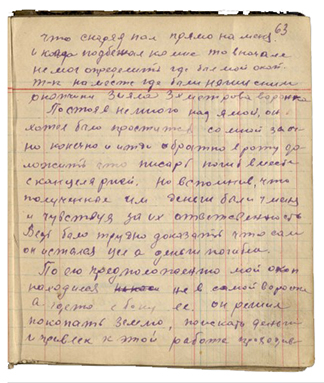 63
что снаряд пал прямо на меня.
и когда подбежал ко мне то вначале
не мог определить где был мой окоп
т-к на месте где были
окопчики зияла 3х метровая воронка
Постояв немного над ямой, он
хотел было проститься со мной заоч
но конечно и идти обратно в роту до
ложить что писарь погиб вместе
с канцелярией. Но вспомнив, что
полученные им деньги были у меня
и чувствуя за их ответственность
Ведь было трудно доказать что сам
он остался цел а деньги погибли.
По его предположению мой окоп
находился не в самой воронке
а где то с боку ее. он решил
покопать землю, поискать деньги
и привлек к этой работе